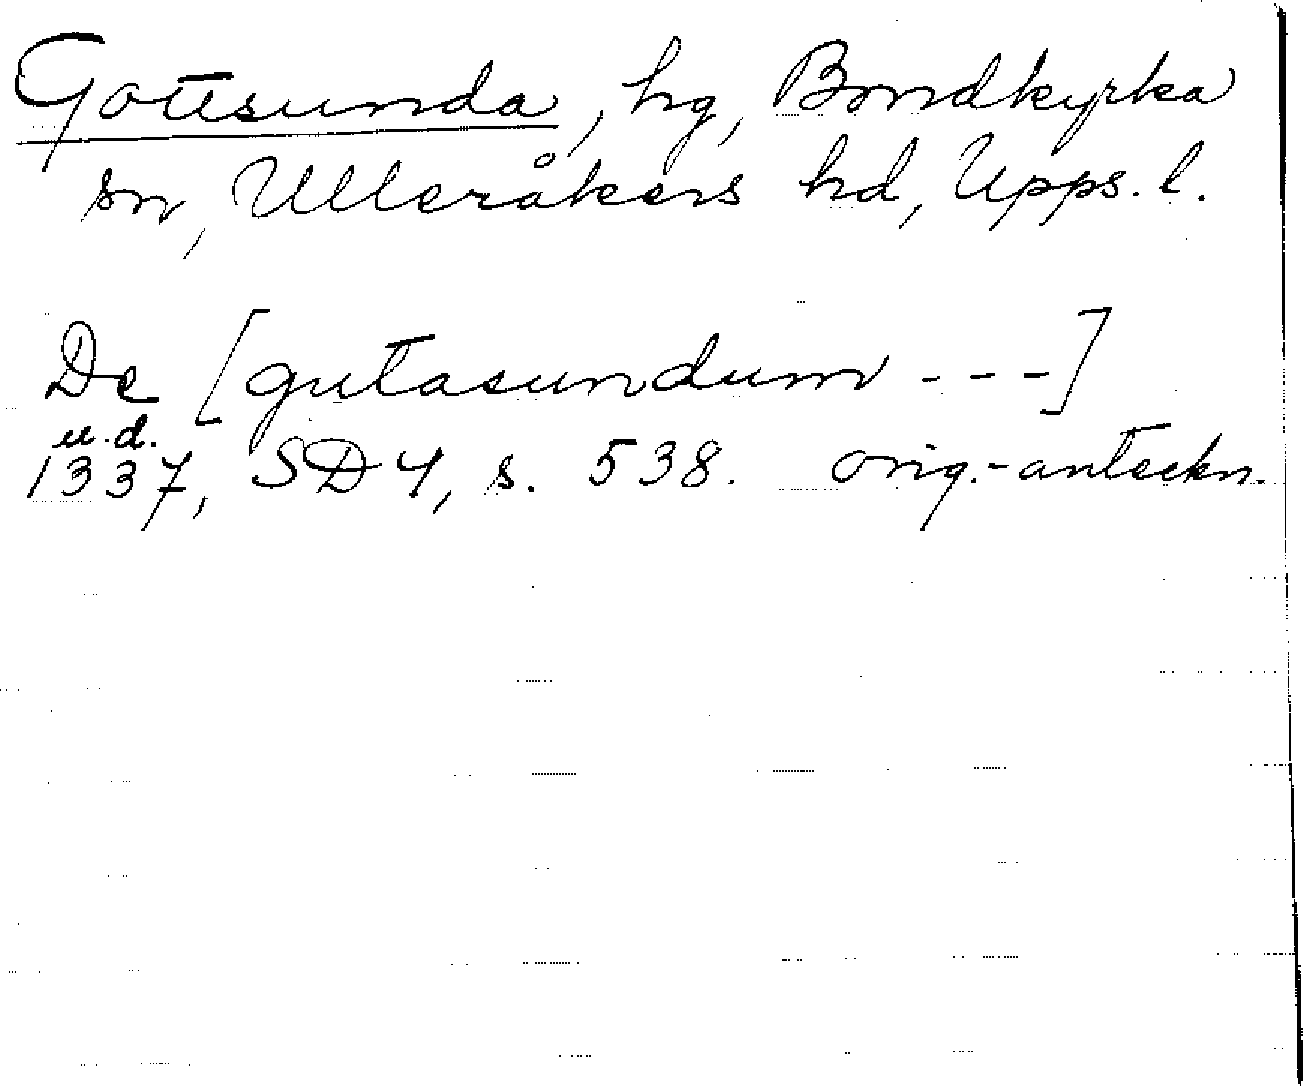 Gottsunda, hg, Bondkyrka
sn, Ulleråkers hd, Upps. l.
De [gutasundum - - -]
u.d.
1337, SD 4, s. 538. orig.-anteckn.